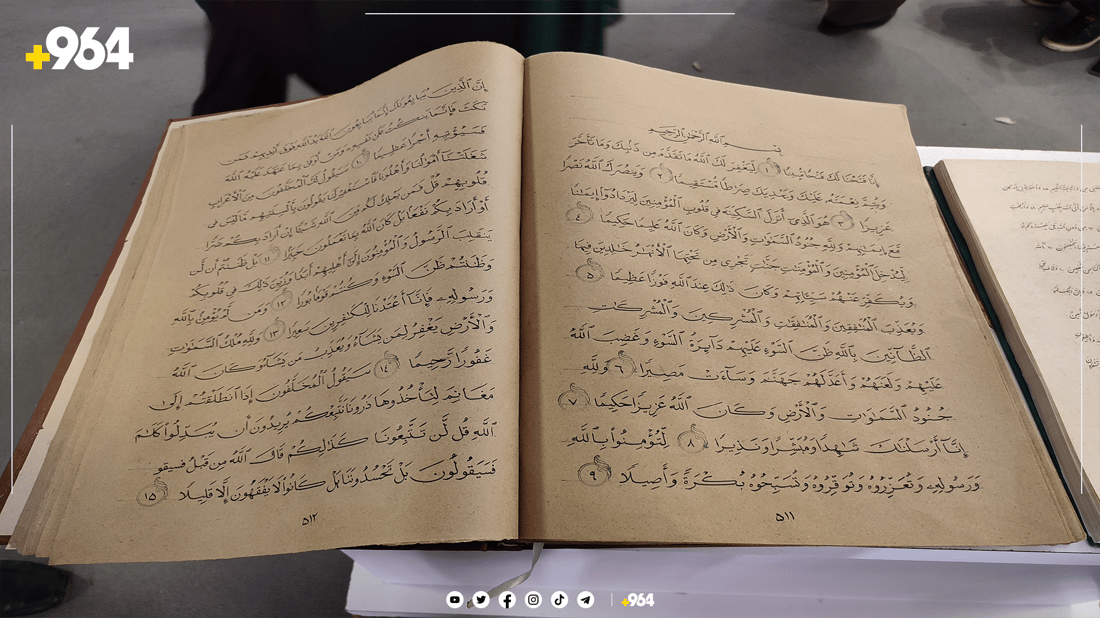 +964
بسم الله الرحمن الرحيم
إِنَّا فَتَحْنَا لَكَ فَتْحًا مُّبِينًا ١ لِّيَغْفِرَ لَكَ ٱللَّهُ مَا تَقَدَّمَ مِن ذَنۢبِكَ وَمَا تَأَخَّرَ
وَيُتِمَّ نِعْمَتَهُۥ عَلَيْكَ وَيَهْدِيَكَ صِرَٰطًا مُّسْتَقِيمًا ٢ وَيَنصُرَكَ ٱللَّهُ نَصْرًا
عَزِيزًا ٣ هُوَ ٱلَّذِىٓ أَنزَلَ ٱلسَّكِينَةَ فِى قُلُوبِ ٱلْمُؤْمِنِينَ لِيَزْدَادُوٓا۟ إِيمَٰنًا
مَّعَ إِيمَٰنِهِمْ وَلِلَّهِ جُنُودُ ٱلسَّمَٰوَٰتِ وَٱلْأَرْضِ وَكَانَ ٱللَّهُ عَلِيمًا حَكِيمًا ٤
لِّيُدْخِلَ ٱلْمُؤْمِنِينَ وَٱلْمُؤْمِنَٰتِ جَنَّٰتٍ تَجْرِى مِن تَحْتِهَا ٱلْأَنْهَٰرُ خَٰلِدِينَ فِيهَا
وَيُكَفِّرَ عَنْهُمْ سَيِّـَٔاتِهِمْ وَكَانَ ذَٰلِكَ عِندَ ٱللَّهِ فَوْزًا عَظِيمًا ٥
وَيُعَذِّبَ ٱلْمُنَٰفِقِينَ وَٱلْمُنَٰفِقَٰتِ وَٱلْمُشْرِكِينَ وَٱلْمُشْرِكَٰتِ
ٱلظَّآنِّينَ بِٱللَّهِ ظَنَّ ٱلسَّوْءِ عَلَيْهِمْ دَآئِرَةُ ٱلسَّوْءِ وَغَضِبَ ٱللَّهُ
عَلَيْهِمْ وَلَعَنَهُمْ وَأَعَدَّ لَهُمْ جَهَنَّمَ وَسَآءَتْ مَصِيرًا ٦ وَلِلَّهِ
جُنُودُ ٱلسَّمَٰوَٰتِ وَٱلْأَرْضِ وَكَانَ ٱللَّهُ عَزِيزًا حَكِيمًا ٧
إِنَّآ أَرْسَلْنَٰكَ شَٰهِدًا وَمُبَشِّرًا وَنَذِيرًا ٨ لِّتُؤْمِنُوا۟ بِٱللَّهِ
وَرَسُولِهِۦ وَتُعَزِّرُوهُ وَتُوَقِّرُوهُ وَتُسَبِّحُوهُ بُكْرَةً وَأَصِيلًا ٩
٥١١
إِنَّ ٱلَّذِينَ يُبَايِعُونَكَ إِنَّمَا يُبَايِعُونَ ٱللَّهَ يَدُ ٱللَّهِ فَوْقَ أَيْدِيهِمْ فَمَن
نَّكَثَ فَإِنَّمَا يَنكُثُ عَلَىٰ نَفْسِهِۦ وَمَنْ أَوْفَىٰ بِمَا عَٰهَدَ عَلَيْهُ ٱللَّهَ
فَسَيُؤْتِيهِ أَجْرًا عَظِيمًا ١٠ سَيَقُولُ لَكَ ٱلْمُخَلَّفُونَ مِنَ ٱلْأَعْرَابِ
شَغَلَتْنَآ أَمْوَٰلُنَا وَأَهْلُونَا فَٱسْتَغْفِرْ لَنَا يَقُولُونَ بِأَلْسِنَتِهِم مَّا لَيْسَ فِى
قُلُوبِهِمْ قُلْ فَمَن يَمْلِكُ لَكُم مِّنَ ٱللَّهِ شَيْـًٔا إِنْ أَرَادَ بِكُمْ ضَرًّا
أَوْ أَرَادَ بِكُمْ نَفْعًۢا بَلْ كَانَ ٱللَّهُ بِمَا تَعْمَلُونَ خَبِيرًۢا ١١ بَلْ ظَنَنتُمْ أَن لَّن
يَنقَلِبَ ٱلرَّسُولُ وَٱلْمُؤْمِنُونَ إِلَىٰٓ أَهْلِيهِمْ أَبَدًا وَزُيِّنَ ذَٰلِكَ فِى قُلُوبِكُمْ
وَظَنَنتُمْ ظَنَّ ٱلسَّوْءِ وَكُنتُمْ قَوْمًۢا بُورًا ١٢ وَمَن لَّمْ يُؤْمِنۢ بِٱللَّهِ
وَرَسُولِهِۦ فَإِنَّآ أَعْتَدْنَا لِلْكَٰفِرِينَ سَعِيرًا ١٣ وَلِلَّهِ مُلْكُ ٱلسَّمَٰوَٰتِ
وَٱلْأَرْضِ يَغْفِرُ لِمَن يَشَآءُ وَيُعَذِّبُ مَن يَشَآءُ وَكَانَ ٱللَّهُ
غَفُورًا رَّحِيمًا ١٤ سَيَقُولُ ٱلْمُخَلَّفُونَ إِذَا ٱنطَلَقْتُمْ إِلَىٰ
مَغَانِمَ لِتَأْخُذُوهَا ذَرُونَا نَتَّبِعْكُمْ يُرِيدُونَ أَن يُبَدِّلُوا۟ كَلَٰمَ
ٱللَّهِ قُل لَّن تَتَّبِعُونَا كَذَٰلِكُمْ قَالَ ٱللَّهُ مِن قَبْلُ فسيقو
فَسَيَقُولُونَ بَلْ تَحْسُدُونَنَا بَلْ كَانُوا۟ لَا يَفْقَهُونَ إِلَّا قَلِيلًا ١٥
٥١٢
+964